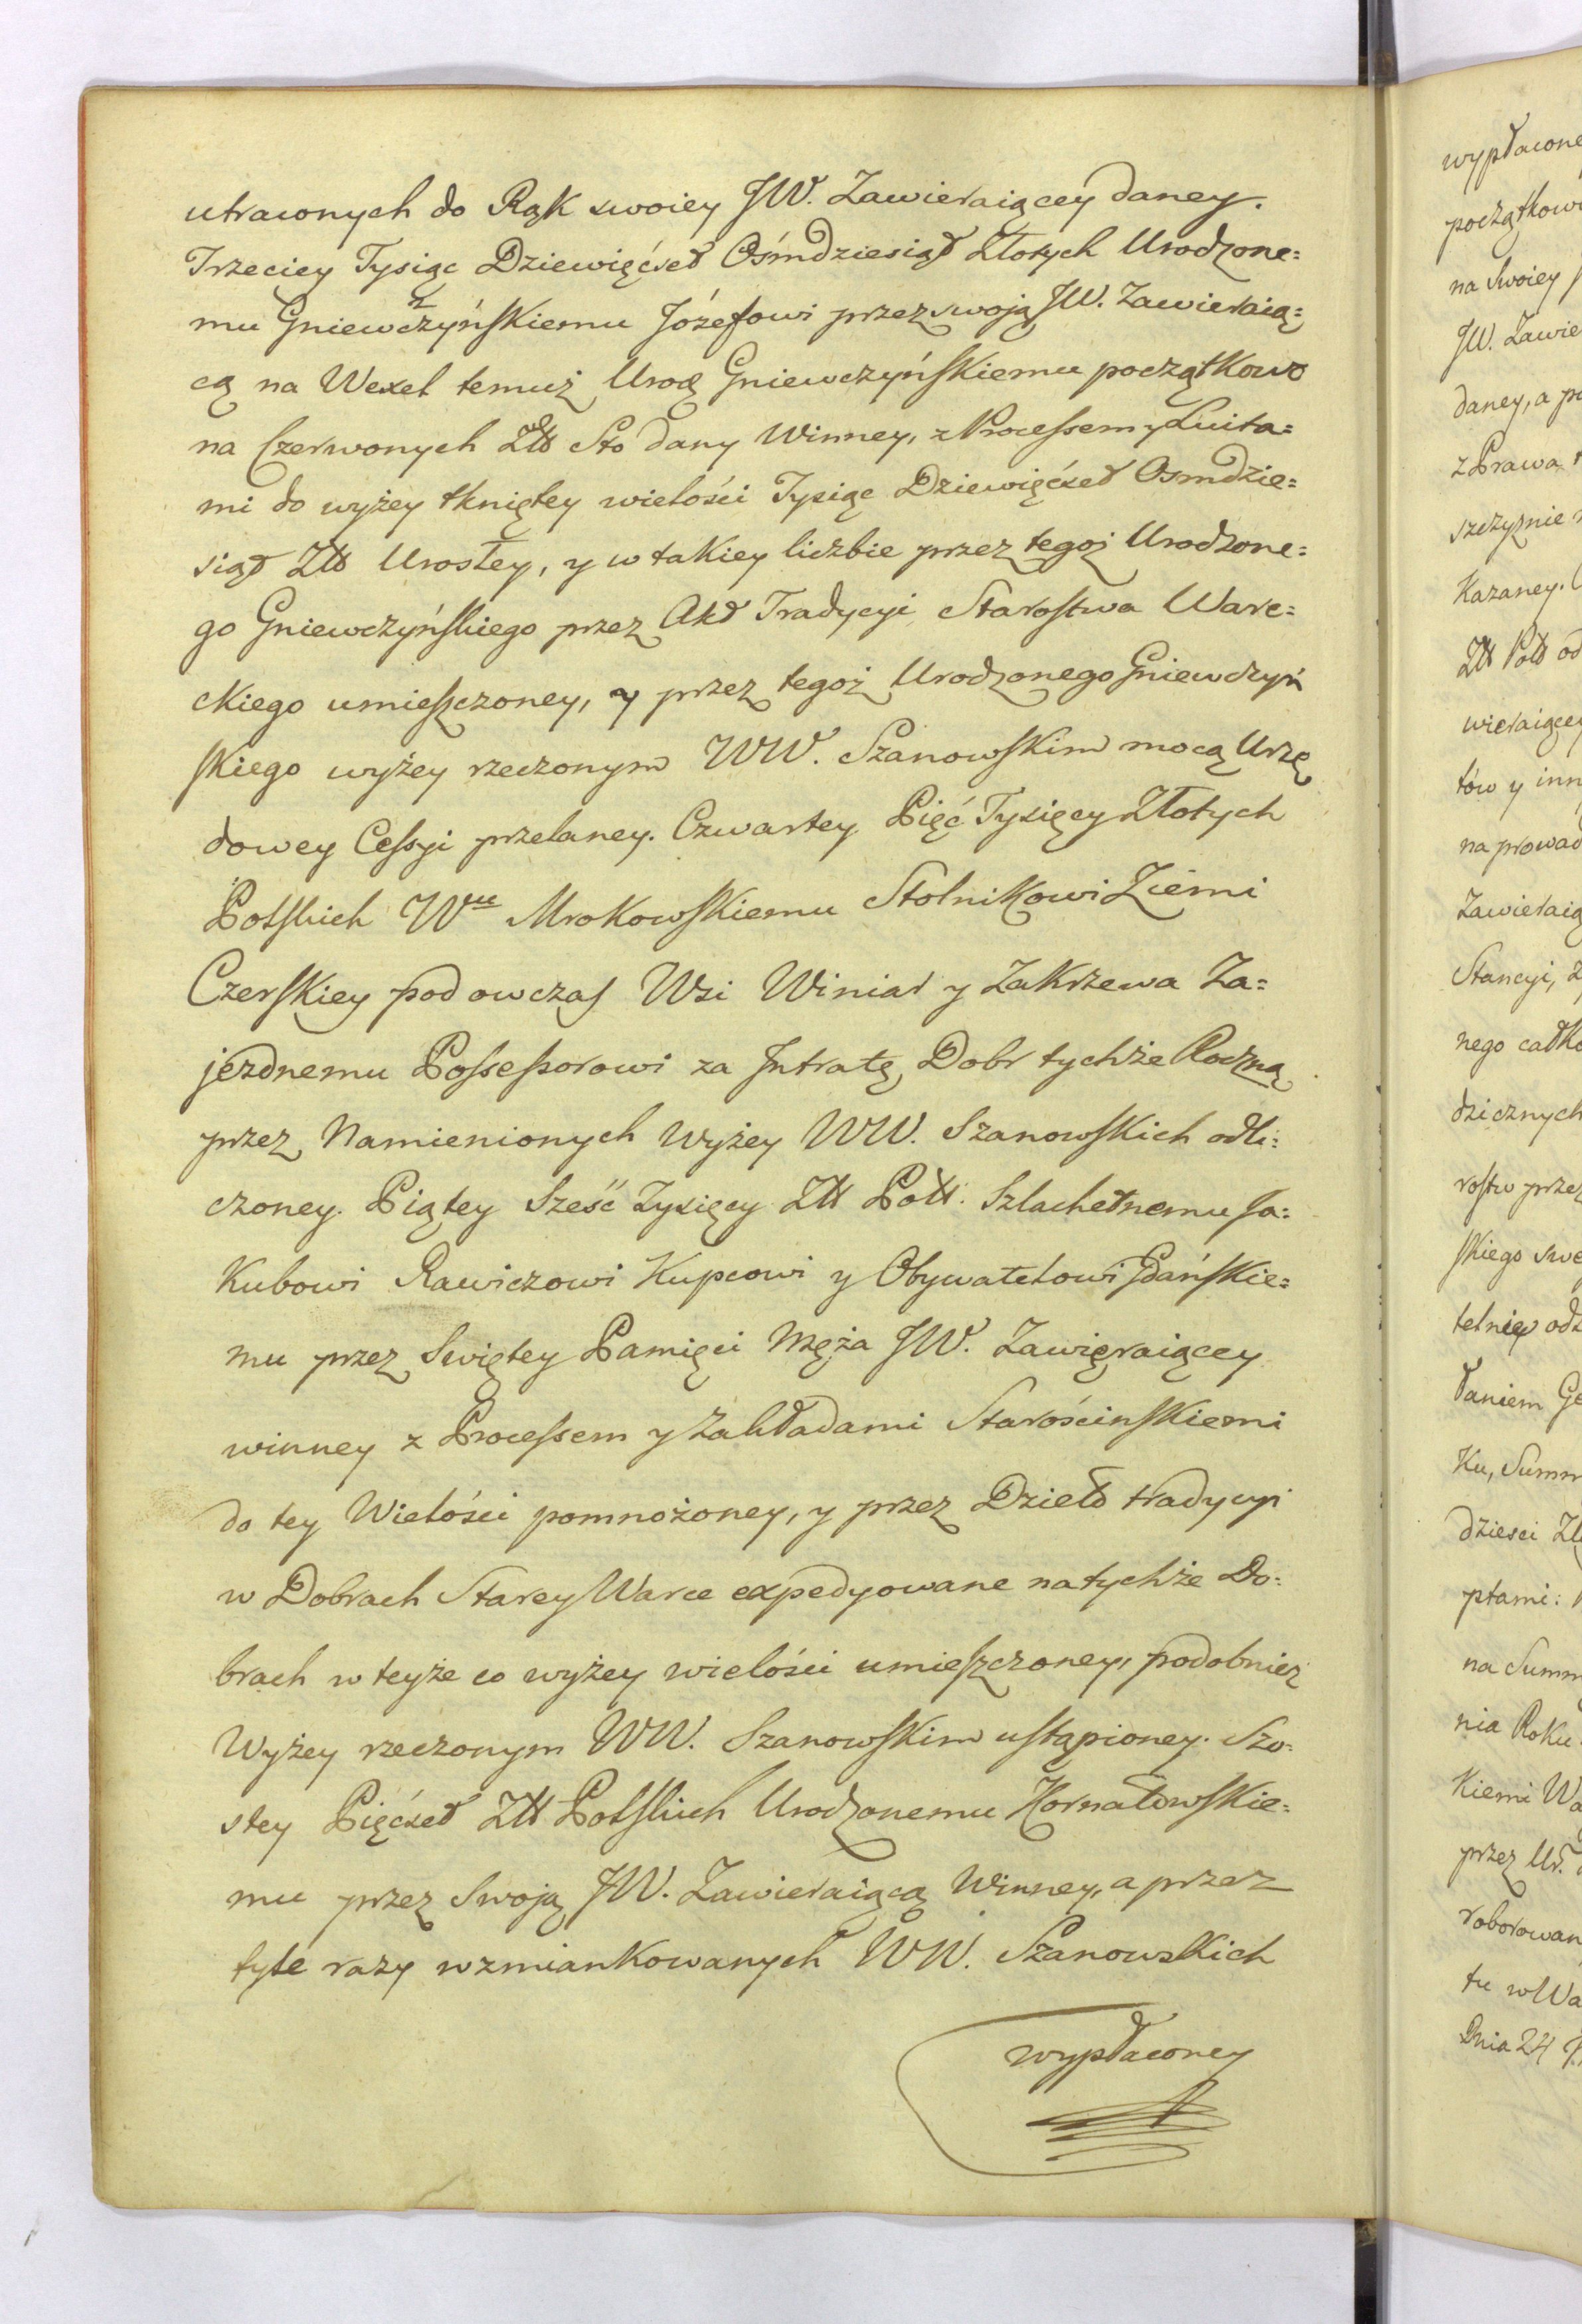 utraconych do Rąk swoiey JW. Zawieraiącey daney.
Trzeciey Tysiąc Dziewięćset Ośmdziesiąt Złotych Urodzone=
mu Gniewczyńskiemu Józefowi przez swoją JW. Zawieraią=
cą na Wexel temuż Urod Gniewczyńskiemu początkowo
na Czerwonych Złł Sto dany Winney, z Processem y Luita=
mi do wyżey tkniętey wielości Tysiąc Dziewięćset Osmdzie=
siąt Złł Urosłey, y w takiey liczbie przez tegoż Urodzone=
go Gniewczyńskiego przez Akt Tradycyi Starostwa Warc=
ckiego umieszczoney, y przez tegoż Urodzonego Gniewczyń
skiego wyżey rzeczonym WW. Szanowskim mocą Urzę
dowey Cessyi przelaney. Czwartey Pięć Tysięcy Złotych
Polskich Wu Mrokowskiemu Stolnikowi Ziemi
Czerskiey pod owczas Wsi Winiar y Zakrzewa Za=
jezdnemu Possessorowi za Intratę Dobr tychże Roczną
przez Namienionych Wyżey WW. Szanowskich odli=
czoney. Piątey Sześć Tysięcy Złł Poll. Szlachetnemu Ja=
kubowi Rawiczowi Kupcowi y Obywatelowi Gdańskie=
mu przez Swiętey Pamięci Męża JW. Zawieraiącey
winney z Processem y Zakładami Starościnskiemi
do tey Wielości pomnożoney, y przez Dzieło tradycyi
w Dobrach Starey Warce expedyowane na tychże Do=
brach w teyże co wyżey wielości umieszczoney, podobnież
Wyżey rzeczonym WW. Szanowskim ustąpioney. Szo=
stey Pięćset Złł Polskich Urodzonemu Hornatowskie=
mu przez Swoją JW. Zawieraiącą Winney, a przez
tyle razy wzmiankowanych WW. Szanowskich
wypłaconey
wypłacone
początkow
na Swoiey
JW. Zawie
daney, a
z Prawa
szczyznie
kazaney.
Złł Poll od
wieraiącey
tów y inn
na prowad
Zawieraią
Stancyi,
nego całko
dzicznych
rostw przez
skiego swe
telniey
Ku, Summ
dziesci Zł
ptami:
na Summ
nia Roku
kiemi Wa
przez Ur.
roborowan
tu w Wa
Dnia 24